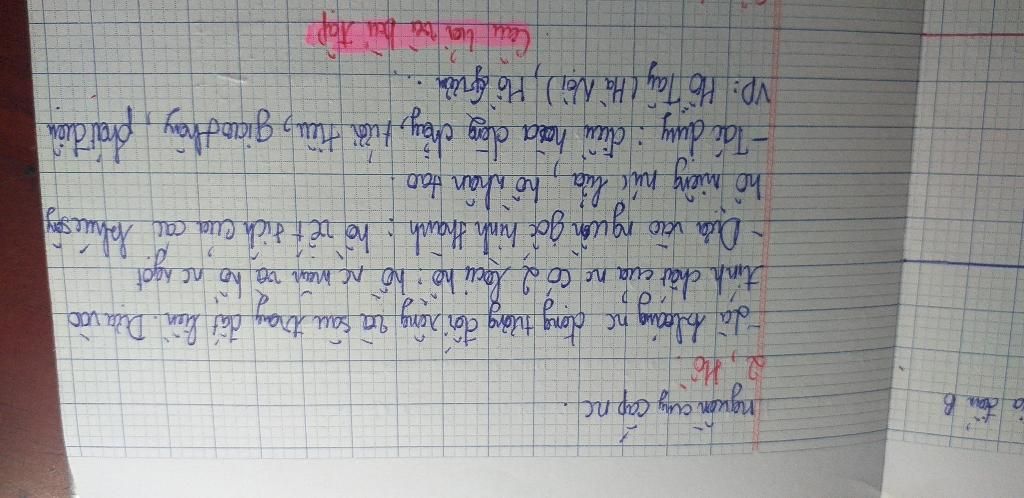 nguồn cung cấp nc.
2, Hồ.
- Là khoảng nc đọng tương đối rộng và sâu trong đất liền. Dựa vào
tính chất của nc có 2 loại hồ: hồ nc mặn và hồ nc ngọt
- Dựa vào nguồn gốc hình thành: hồ vết tích của các khúc sông
hồ miệng núi lửa, hồ nhân tạo.
- Tác dụng: điều hòa dòng chảy, tưới tiêu, giao thông, phát điện
VD: Hồ Tây (Hà Nội), Hồ Gươm...
Câu hỏi và bài tập
B